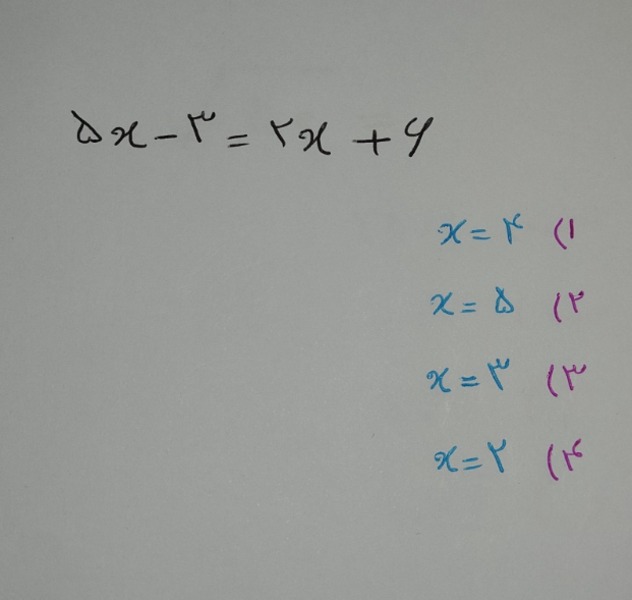 ۵x - ۳ = ۲x + ۶
x = ۴ (۱
x = ۵ (۲
x = ۳ (۳
x = ۲ (۴